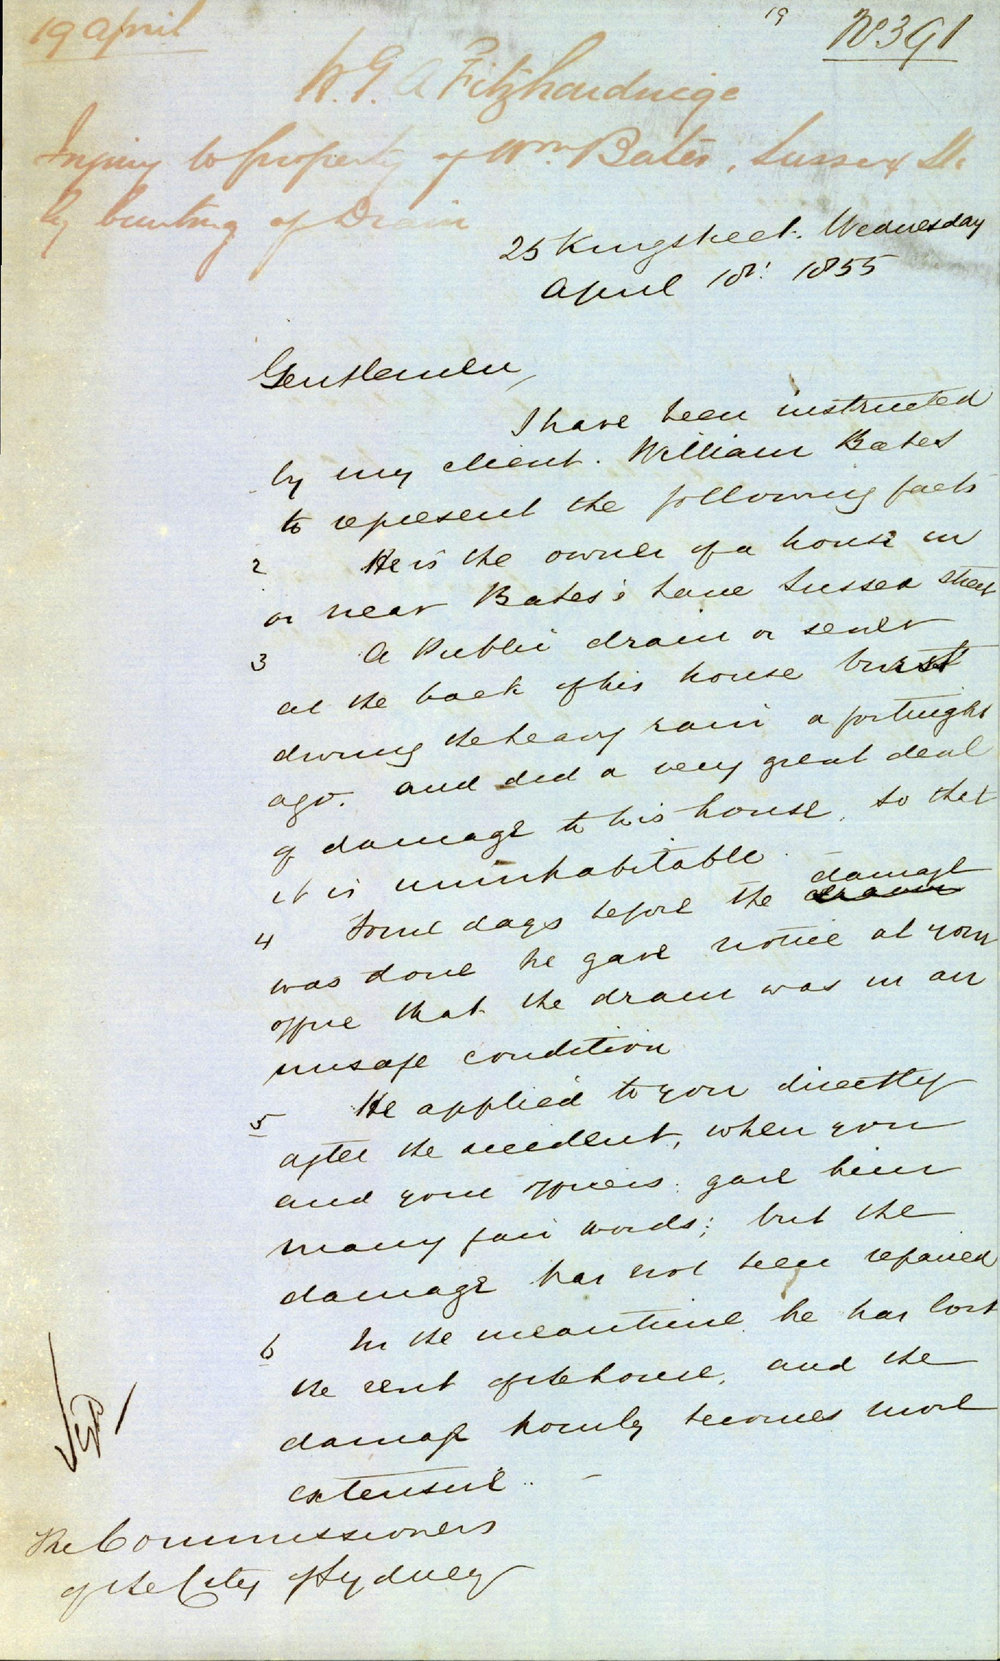 19 April
19
No 391
W. G. A Fitzhardinge
Injury to property of Wm Bates, Sussex St.
by bursting of Drain
25 King street. Wednesday
April 18: 1855
Gentlemen,
I have been instructed
by my client. William Bates
to represent the following facts
2 He is the owner of a house in
or near Bates's Lane Sussex Street
3 A Public drain or sewer
at the back of his house burst
during the heavy rain a fortnight
ago. and did a very great deal
of damage to his house, so that
it is uninhabitable.
damage
4 Some days before the drain
was done he gave notice at your
office that the drain was in an
unsafe condition
5 He applied to you directly
after the accident, when you
and your officers. gave him
many fair words; but the
damage has not been repaired
6 In the meantime he has lost
the rent of the house, and the
damage hourly becomes more
extensive.
The Commissioners
of the City of Sydney